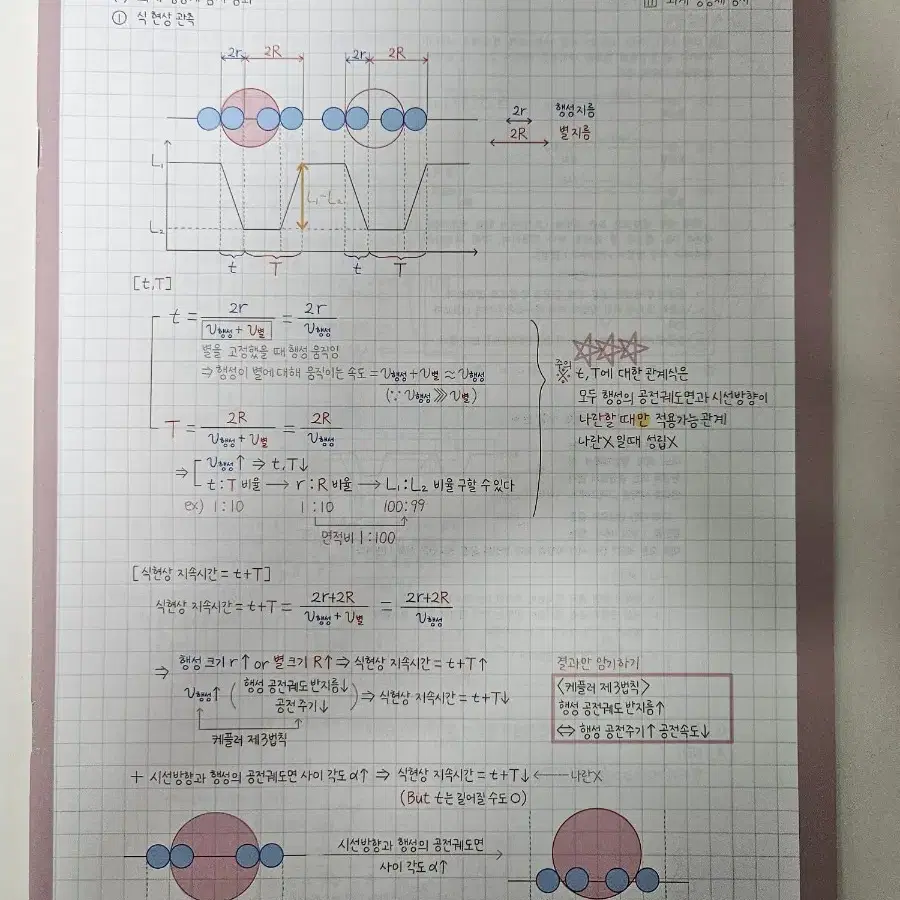 ① 식 현상 관측
2r 2R 2r 2R
2r 행성 지름
2R 별 지름
L₁
L₁-L₂
L₂
t T t T
[t,T]
t = 2r / (v행성 + v별) = 2r / v행성
별을 고정했을 때 행성 움직임
⇒ 행성이 별에 대해 움직이는 속도 = v행성 + v별 ≈ v행성
(∵ v행성 ⋙ v별)
T = 2R / (v행성 + v별) = 2R / v행성
⇒ v행성↑ ⇒ t,T↓
t : T 비율 → r : R 비율 → L₁ : L₂ 비율 구할 수 있다
ex) 1:10 1:10 100:99
면적비 1:100
주의
※ t,T에 대한 관계식은
모두 행성의 공전궤도면과 시선방향이
나란할 때만 적용가능 관계
나란X일때 성립X
[식현상 지속시간 = t+T]
식현상 지속시간 = t+T = (2r+2R) / (v행성 + v별) = (2r+2R) / v행성
⇒ 행성 크기 r↑ or 별 크기 R↑ ⇒ 식현상 지속시간 = t+T↑
v행성↑ (행성 공전궤도 반지름↓ 공전 주기↓) ⇒ 식현상 지속시간 = t+T↓
케플러 제3법칙
결과만 암기하기
<케플러 제3법칙>
행성 공전궤도 반지름↑
⇔ 행성 공전주기↑ 공전속도↓
+ 시선방향과 행성의 공전궤도면 사이 각도 α↑ ⇒ 식현상 지속시간 = t+T↓ ← 나란X
(But t는 길어질 수도 O)
시선방향과 행성의 공전궤도면
사이 각도 α↑